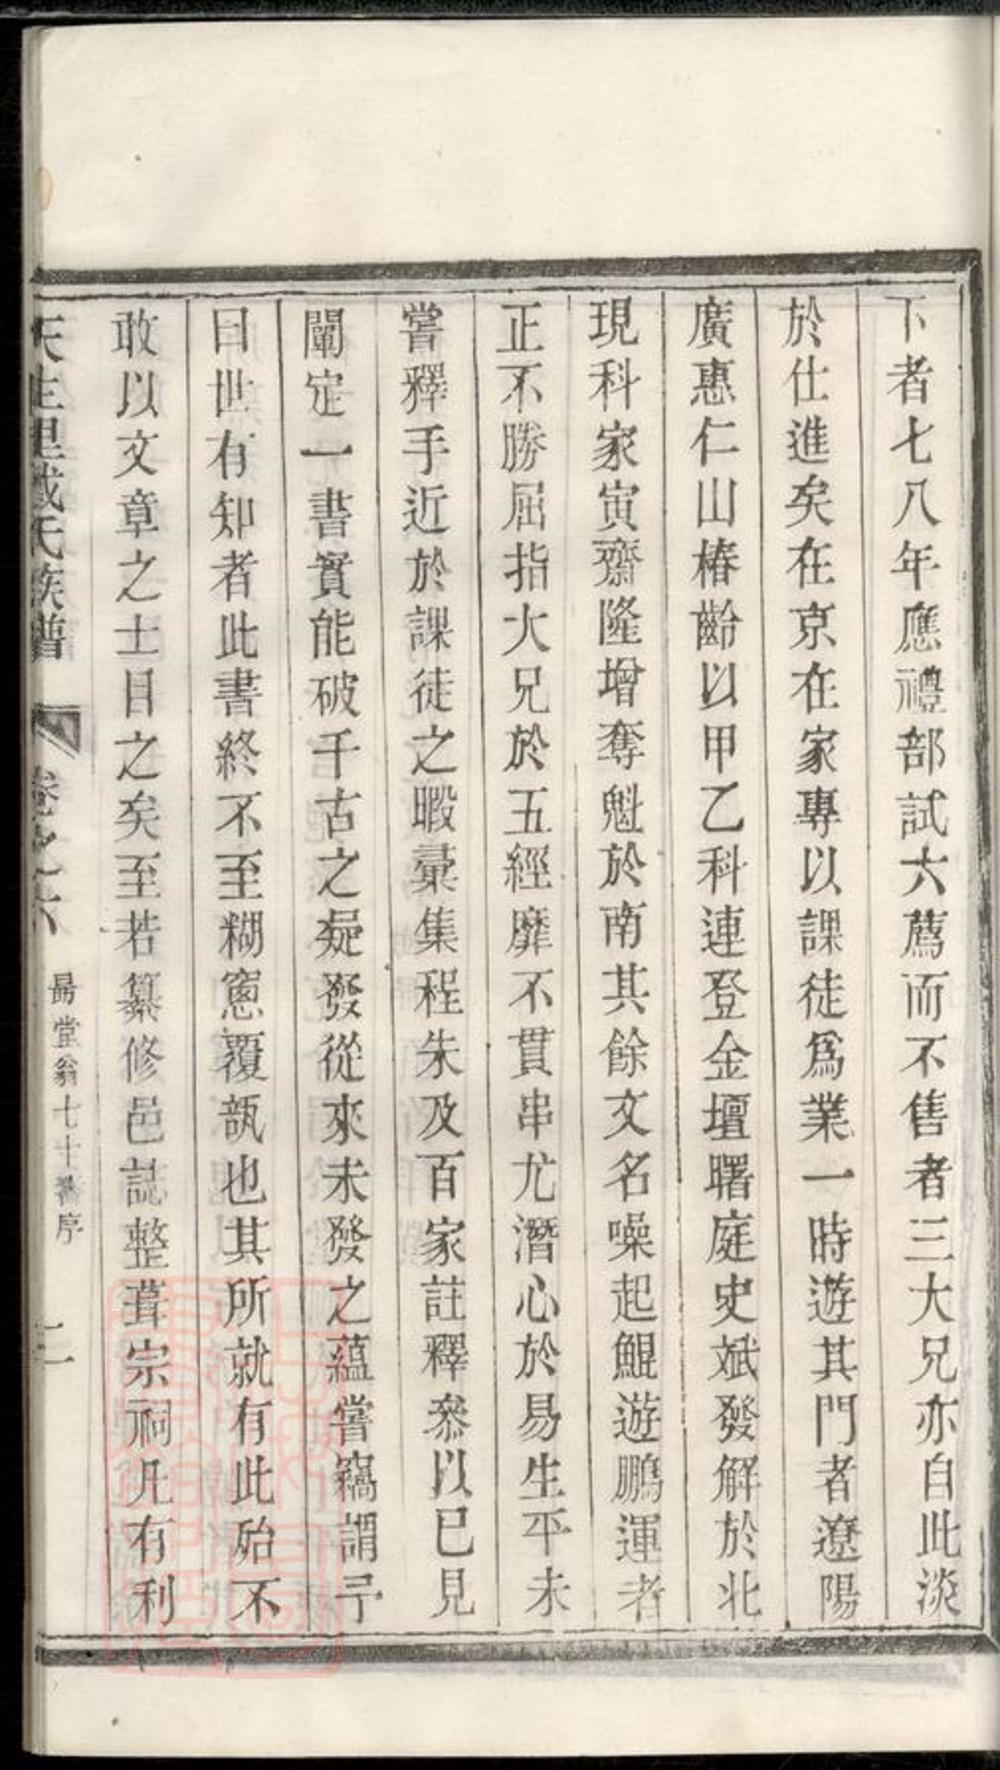 下者七八年應禮部試六薦而不售者三大兄亦自此淡
於仕進矣在京在家專以課徒爲業一時遊其門者遼陽
廣惠仁山椿齡以甲乙科連登金壇曙庭史斌發解於北
現科家寅齋隆增奪魁於南其餘文名噪起鯤遊鵬運者
正不勝屈指大兄於五經靡不貫串尤潛心於易生平未
嘗釋手近於課徒之暇彙集程朱及百家註釋叅以已見
闡定一書實能破千古之疑發從來未發之蘊嘗竊謂予
曰世有知者此書終不至糊窻覆瓿也其所就有此殆不
敢以文章之士目之矣至若纂修邑誌整葺宗祠凡有利
天生里戴氏族譜 卷之六 勗堂翁七十壽序 二